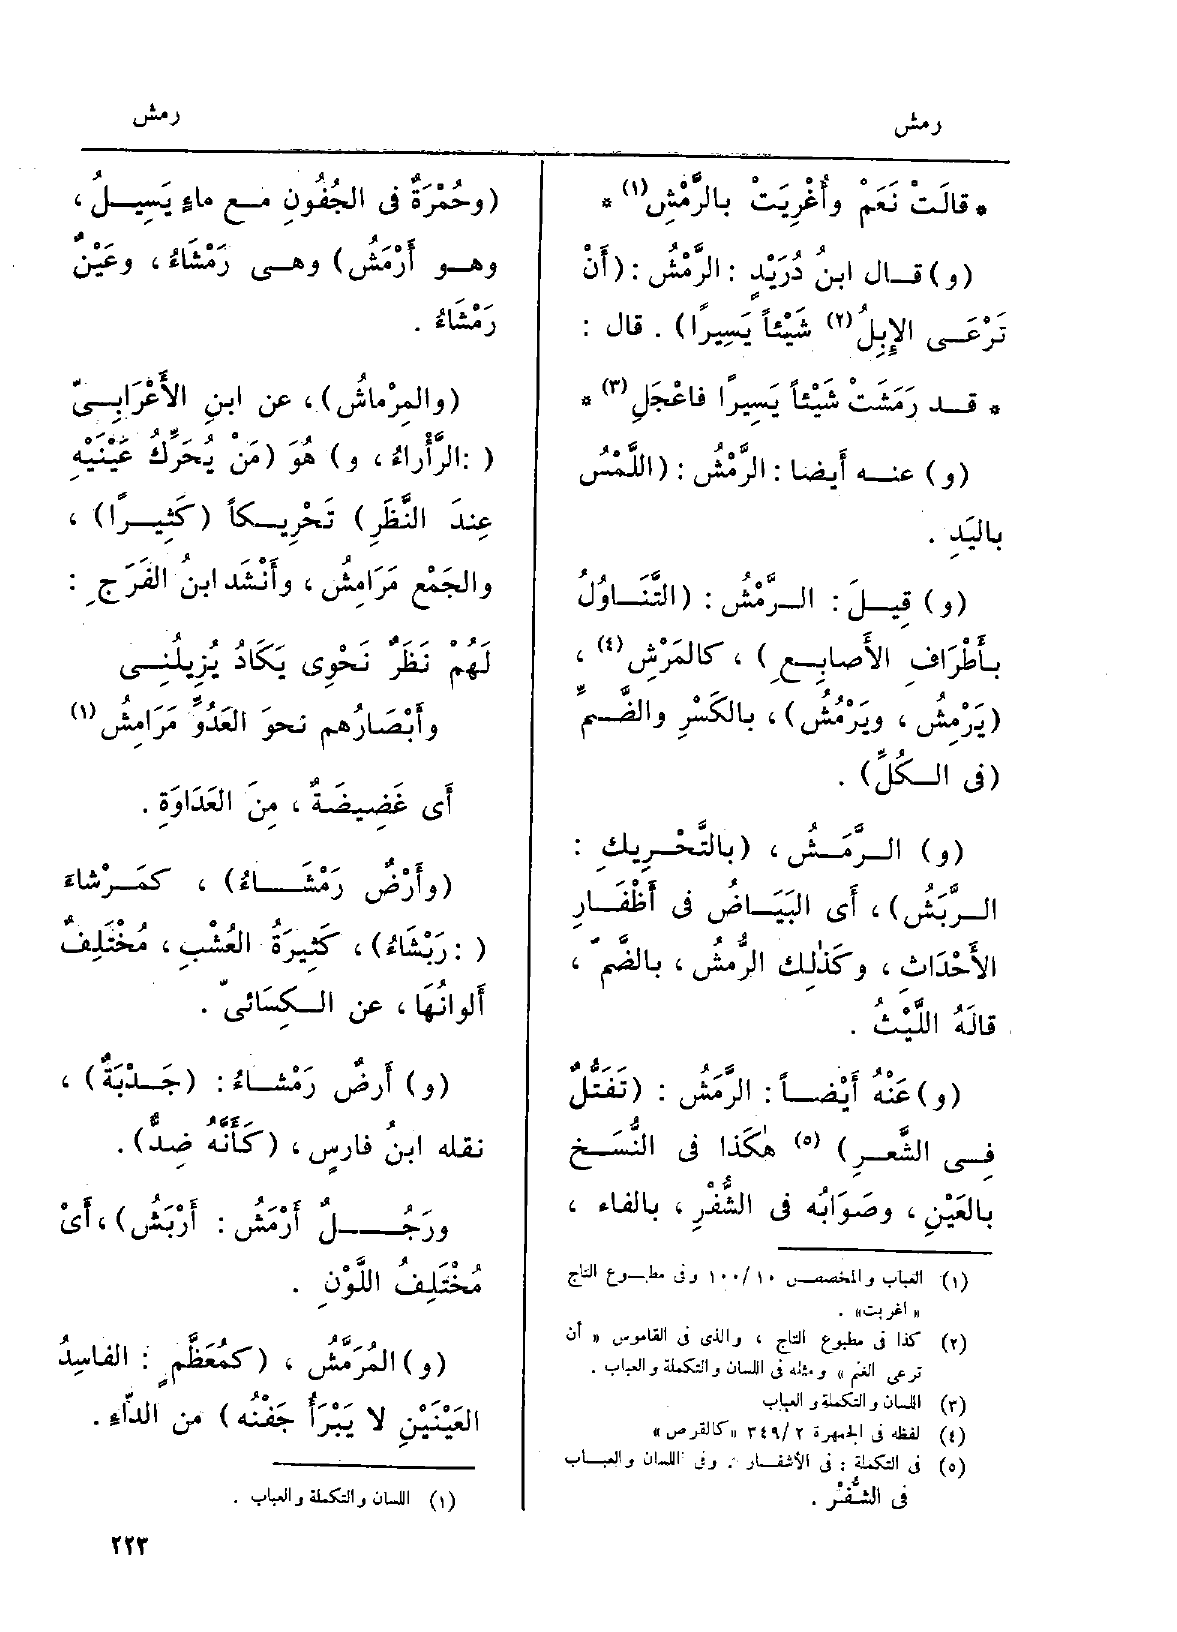 رمش
رمش
* قالَتْ نَعَمْ وأُغْرِيَتْ بالرَّمْشِ (١) *
(و) قــال ابنُ دُرَيْدٍ : الرَّمْشُ : (أَنْ
تَرْعَــى الإِبِلُ (٢) شَيْئاً يَسِيرًا) . قال :
* قــد رَمَشَتْ شَيْئاً يَسِيرًا فاعْجَلِ (٣) *
(و) عنــه أَيضا : الرَّمْشُ : (اللَّمْسُ
باليَدِ .
(و) قِيــلَ : الــرَّمْشُ : (التَّنَــاوُلُ
بـأَطْرَافِ الأَصابِـعِ ) ، كالمَرْشِ (٤) ،
(يَرْمِشُ ، ويَرْمُشُ) ، بالكَسْرِ والضَّــمِّ
(فى الــكُلِّ) .
(و) الــرَّمَــشُ ، (بالتَّحْــرِيكِ :
الــرَّبَشُ) ، أَى البَيَــاضُ فى أَظْفَــارِ
الأَحْدَاثِ ، وكَذٰلِك الرُّمْشُ ، بالضَّمّ ،
قالَهُ اللَّيْثُ .
(و) عَنْهُ أَيْضــاً : الرَّمَشُ : (تَفَتُّلٌ
فِــى الشَّعَــرِ) (٥) هٰكَذا فى النُّسَــخ
بالعَيْنِ ، وصَوَابُه فى الشُّفْرِ ، بالفاء ،
(١) العباب والمخصــص ١٠ /١٠٠ وفى مطبــوع التاج
« أغربت» .
(٢) كذا فى مطبوع التاج ، والذى فى القاموس « أن
ترعى الغنم » ومثله فى اللسان والتكملة والعباب .
(٣) اللسان والتكملة والعباب
(٤) لفظه فى الجمهرة ٢ /٣٤٩ «كالقرص »
(٥) فى التكملة : فى الأشفــار . وفى اللسان والعبــاب
فى الشُّفْر .
(وحُمْرَةٌ فى الجُفُونِ مــع ماءٍ يَسِيــلُ ،
وهــو أَرْمَشُ) وهــى رَمْشَاءُ ، وعَيْنٌ
رَمْشَاءُ .
(والمِرْماشُ) ، عن ابنِ الأَعْرَابِــىّ
( : الرَّأْراءُ ، و) هُوَ (مَنْ يُحَرِّكُ عَيْنَيْهِ
عِندَ النَّظَرِ) تَحْرِيــكاً (كَثِيــرًا) ،
والجَمْع مَرَامِشُ ، وأَنْشَد ابنُ الفَرَجِ :
لَهُمْ نَظَرٌ نَحْوِى يَكَادُ يُزِيلُنِــى
وأَبْصَارُهم نحوَ العَدُوِّ مَرَامِشُ (١)
أَى غَضِيضَةٌ ، مِنَ العَدَاوَةِ .
(وأَرْضٌ رَمْشَــاءُ) ، كمَــرْشاءَ
( : رَبْشَاءُ) ، كَثِيرَةُ العُشْبِ ، مُخْتَلِفٌ
أَلوانُهَا ، عن الــكِسَائىّ .
(و) أَرضٌ رَمْشــاءُ : (جَــدْبَةٌ) ،
نقله ابنُ فارِسٍ ، (كَأَنَّهُ ضِدٌّ) .
ورَجُــلٌ أَرْمَشُ : أَرْبَشُ) ، أَىْ
مُخْتَلِفُ اللَّوْنِ .
(و) المُرَمَّشُ ، (كمُعَظَّمٍ : الفاسِدُ
العَيْنَيْنِ لا يَبْرَأُ جَفْنُه) من الدّاءِ .
(١) اللسان والتكملة والعباب .
٢٢٣